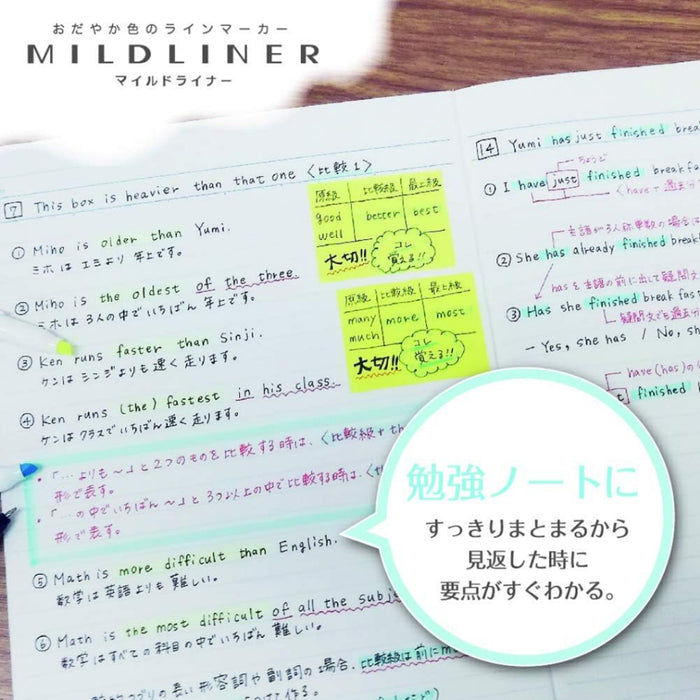 おだやか色のラインマーカー
MILDLINER
マイルドライナー
7 This box is heavier than that one 〈比較1〉
① Miho is older than Yumi.
ミホは エミより 年上です。
② Miho is the oldest of the three.
ミホは 3人の中でいちばん 年上です。
③ Ken runs faster than Sinji.
ケンはシンジよりも速く走ります。
④ Ken runs (the) fastest in his class.
ケンはクラスでいちばん速く走ります。
・「…よりも〜」と2つのものを比較する時は、〈比較級+th
形で表す。
・「…の中でいちばん〜」と3つ以上の中で比較する時は、〈th
形で表す。
⑤ Math is more difficult than English.
数学は英語よりも難しい。
⑥ Math is the most difficult of all the subje
数学はすべての科目の中でいちばん難しい。
の長い形容詞や副詞の場合、比較級は前にm
原級 比較級 最上級
good better best
well
大切!! コレ覚える!!
原級 比較級 最上級
many more most
much
大切!! コレ覚える!!
14 Yumi has just finished break
ちょうど
① I have just finished breakfa
〈haveで過去分
主語が3人称単数の場合は
② She has already finished break
hasを主語の前に出して疑問文
③ Has she finished breakfas
疑問文でも過去分
- Yes, she has / No, she
have(has)の
finished b
勉強ノートに
すっきりまとまるから
見返した時に
要点がすぐわかる。